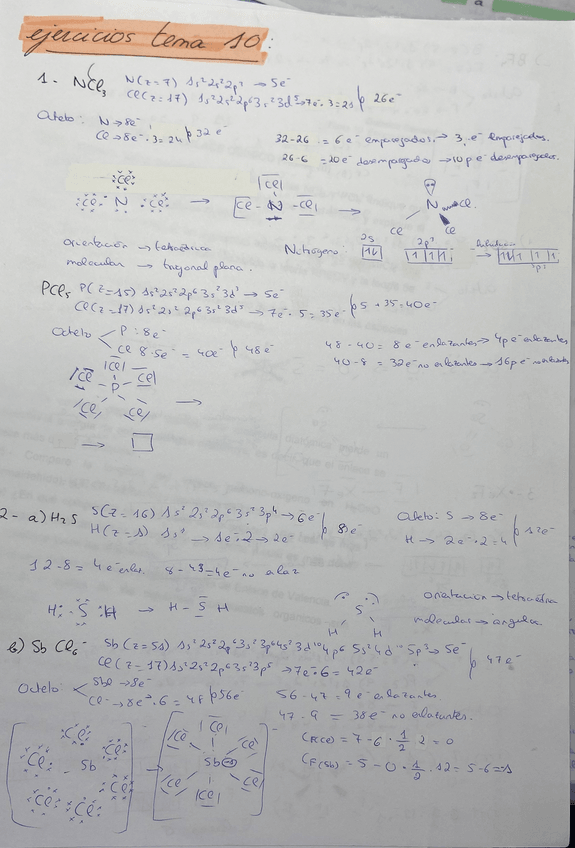 ejercicios tema 10:
1- NCl₃ N(z=7) 1s² 2s² 2p³ → 5e⁻
Cl(z=17) 1s² 2s² 2p⁶ 3s² 3d⁵ → 7e⁻·3=21 26e⁻
Octeto: N → 8e⁻
Cl → 8e⁻·3=24 32e⁻
32-26 = 6e⁻ emparejados → 3 e⁻ emparejados.
26-6 = 20e⁻ desemparejados → 10 p e⁻ desemparejados.
Cl
Cl N Cl → Cl - N - Cl → N Cl
Cl Cl
orientación → tetraédrica
molecular → trigonal plana.
Nitrógeno: 2s 2p³
PCl₅ P(z=15) 1s² 2s² 2p⁶ 3s² 3d³ → 5e⁻
Cl(z=17) 1s² 2s² 2p⁶ 3s² 3d⁵ → 7e⁻·5=35e⁻ 5+35=40e⁻
Octeto P: 8e⁻
Cl 8·5e⁻ = 40e⁻ 48e⁻
48-40 = 8e⁻ enlazantes → 4p e⁻ enlazantes
40-8 = 32e⁻ no enlazantes → 16p e⁻ no enlazantes
Cl
Cl P Cl →
Cl Cl
→
2- a) H₂S S(z=16) 1s² 2s² 2p⁶ 3s² 3p⁴ → 6e⁻
H(z=1) 1s¹ → 1e⁻·2 → 2e⁻ 8e⁻
Octeto: S → 8e⁻
H → 2e⁻·2=4 12e⁻
12-8 = 4e⁻ enlaz. 8-4=4e⁻ no enlaz
H S H → H - S H
S
H H
orientación → tetraédrica
molecular → angular.
b) SbCl₆⁻ Sb(z=51) 1s² 2s² 2p⁶ 3s² 3p⁶ 4s² 3d¹⁰ 4p⁶ 5s² 4d¹⁰ 5p³ → 5e⁻
Cl(z=17) 1s² 2s² 2p⁶ 3s² 3p⁵ → 7e⁻·6=42e⁻ 47e⁻
Octeto → 8e⁻
Cl → 8e⁻·6=48 56e⁻
56-47 = 9e⁻ enlazantes
47-9 = 38e⁻ no enlazantes.
CF(Cl) = 7-6·1/2·2=0
CF(Sb) = 5-0·1/2·12=5-6=1
Cl Cl Cl Sb Cl Cl Cl → Cl Cl Cl Sb Cl Cl Cl